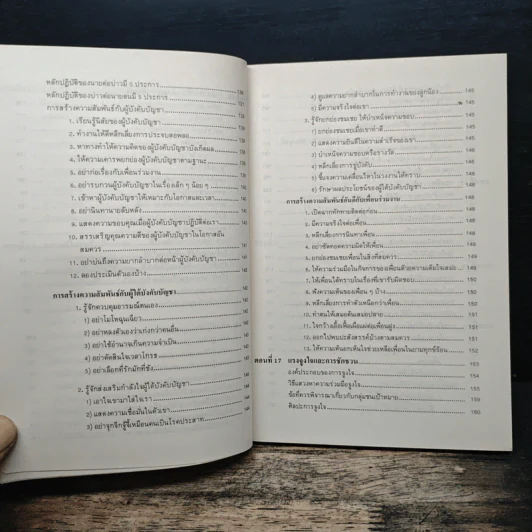 หลักปฏิบัติของนายต่อบ่าวมี 5 ประการ
หลักปฏิบัติของบ่าวต่อนายมี 5 ประการ
การสร้างความสัมพันธ์กับผู้บังคับบัญชา
1. เรียนรู้นิสัยของผู้บังคับบัญชา
2. ทำงานให้ดีหลีกเลี่ยงการประจบสอพลอ
3. หาทางทำให้ความคิดของผู้บังคับบัญชาบังเกิดผล
4. ให้ความเคารพยกย่องผู้บังคับบัญชาตามฐานะ
5. อย่าก่อเรื่องกับเพื่อนร่วมงาน
6. อย่ารบกวนผู้บังคับบัญชาในเรื่องเล็ก ๆ น้อย ๆ
7. เข้าหาผู้บังคับบัญชาให้เหมาะกับโอกาสและเวลา
8. อย่านินทานายลับหลัง
9. แสดงความขอบคุณเมื่อผู้บังคับบัญชาปฏิบัติดีต่อเรา
10. สรรเสริญคุณความดีของผู้บังคับบัญชาในโอกาสอัน
สมควร
11. อย่าบ่นถึงความยากลำบากต่อหน้าผู้บังคับบัญชา
12. ลองประเมินตัวเองบ้าง 142
การสร้างความสัมพันธ์กับผู้ใต้บังคับบัญชา
1. รู้จักควบคุมอารมณ์ตนเอง
1) อย่าโมโหฉุนเฉียว
2) อย่าหลงตัวเองว่าเก่งกว่าคนอื่น
3) อย่าใช้อำนาจเกินความจำเป็น
4) อย่าตัดสินใจเวลาโกรธ
5) อย่าเลือกที่รักมักที่ชัง
2. รู้จักส่งเสริมกำลังใจผู้ใต้บังคับบัญชา
1) เอาใจเขามาใส่ใจเรา
2) แสดงความเชื่อมั่นในตัวเขา
3) อย่าจุกจิกจู้จี้เหมือนคนเป็นโรคประสาท
4) ดูแลความยากลำบากในการทำงานของลูกน้อง 145
5) มีความจริงใจต่อเขา 145
3. รู้จักยกย่องชมเชย ให้บำเหน็จความชอบ 145
1) ยกย่องชมเชยเมื่อเขาทำดี
2) แสดงความยินดีในความสำเร็จของเขา
3) บำเหน็จความชอบหรือรางวัล
4) หลีกเลี่ยงการขู่บังคับ
5) ชี้แจงความเคลื่อนไหวในวงงานให้ทราบ
6) รักษาผลประโยชน์ของผู้ใต้บังคับบัญชา
การสร้างความสัมพันธ์อันดีกับเพื่อนร่วมงาน 148
1. เปิดฉากทักทายติดต่อก่อน
2. มีความจริงใจต่อเพื่อน
3. หลีกเลี่ยงการนินทาเพื่อน
4. อย่าซัดทอดความผิดให้เพื่อน
5. ยกย่องชมเชยเพื่อนในสิ่งที่สมควร
6. ให้ความร่วมมือในกิจการของเพื่อนด้วยความเต็มใจเสมอ
7. ให้เพื่อนได้ทราบในเรื่องที่เขารับผิดชอบ
8. ฟังความเห็นของเพื่อน ๆ บ้าง
9. หลีกเลี่ยงการทำตัวเหนือกว่าเพื่อน
10. ทำตนให้เสมอต้นเสมอปลาย
11. ใจกว้างเอื้อเฟื้อเผื่อแผ่ต่อเพื่อนฝูง
12. ออกไปพบปะสังสรรค์บ้างตามสมควร
13. ให้ความเห็นอกเห็นใจช่วยเหลือเพื่อนในยามทุกข์ร้อน
ตอนที่ 17 แรงจูงใจและการชักชวน
องค์ประกอบของการจูงใจ 153
วิธีแสวงหาความร่วมมือจูงใจ 154
ข้อที่ควรพิจารณาเกี่ยวกับกลุ่มชนเป้าหมาย
ศิลปะการจูงใจ 160